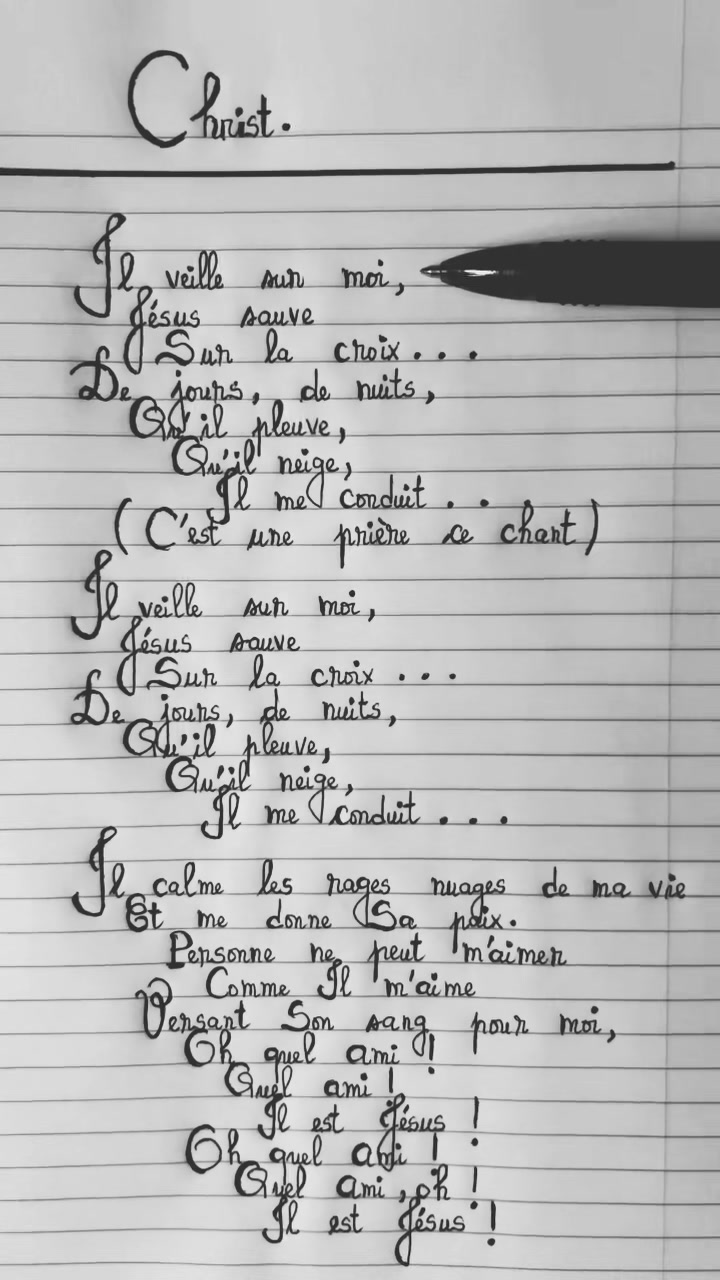 Christ.
Il veille sur moi,
Jésus sauve
Sur la croix...
De jours, de nuits,
Qu'il pleuve,
Qu'il neige,
Il me conduit...
(C'est une prière ce chant)
Il veille sur moi,
Jésus sauve
Sur la croix...
De jours, de nuits,
Qu'il pleuve,
Qu'il neige,
Il me conduit...
Il calme les rages nuages de ma vie
Et me donne Sa paix.
Personne ne peut m'aimer
Comme Il m'aime
Versant Son sang pour moi,
Oh quel ami !
Quel ami !
Il est Jésus !
Oh quel ami !
Quel ami, oh !
Il est Jésus !